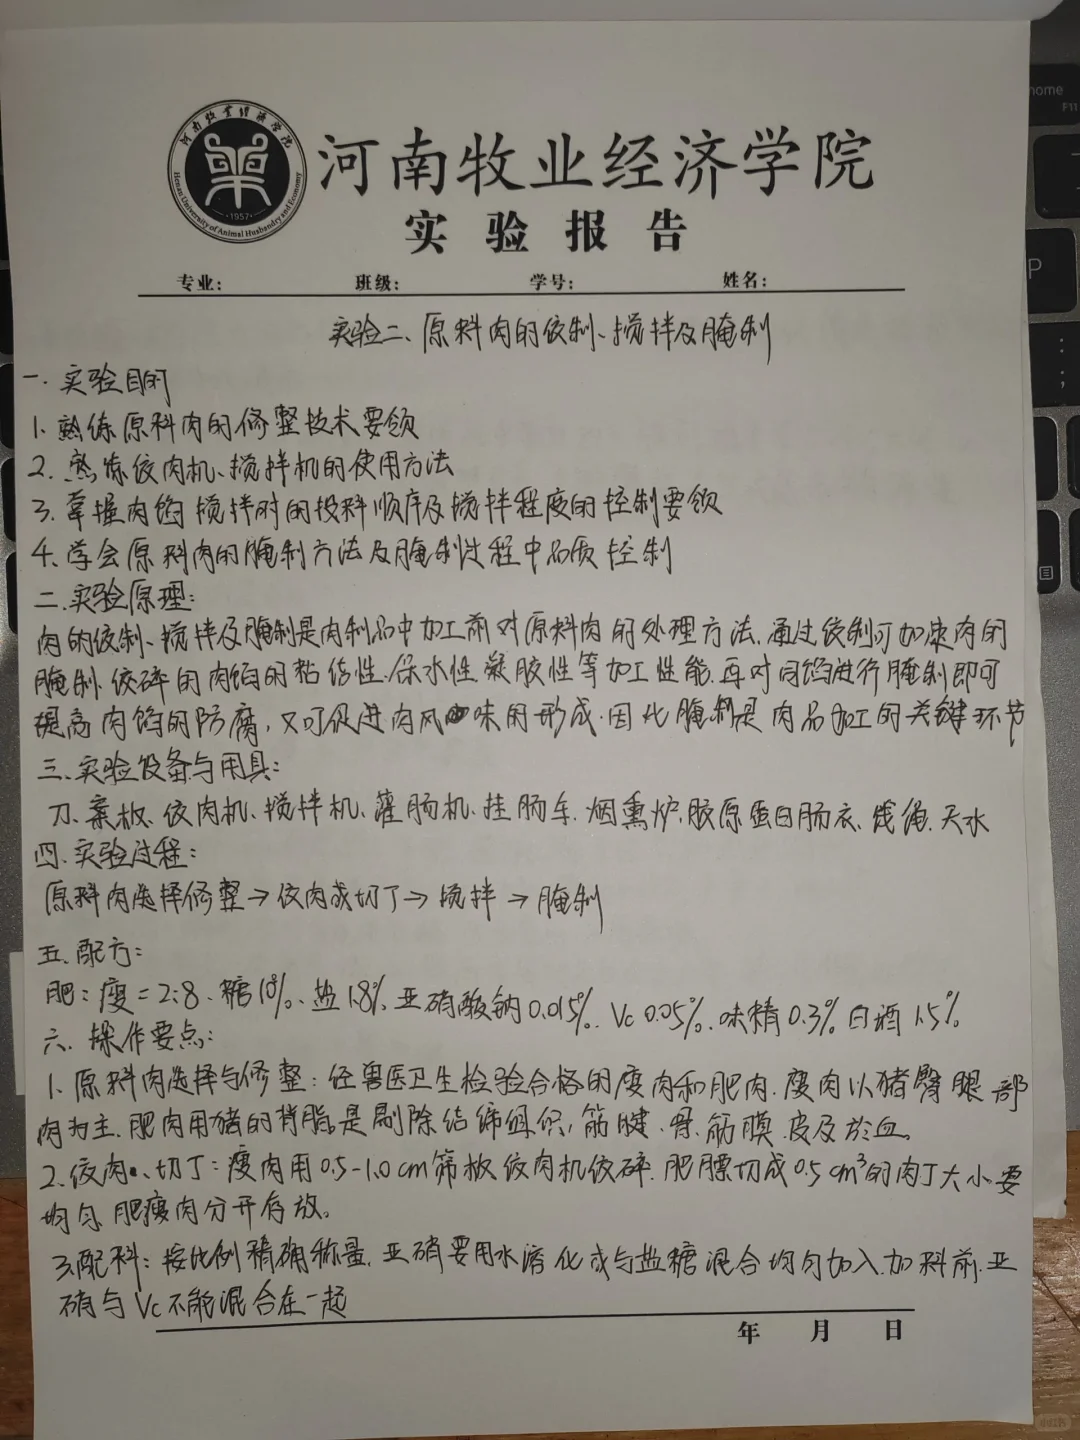 河南牧业经济学院
Henan University of Animal Husbandry and Economy
·1957·
河南牧业经济学院
实验报告
专业: 班级: 学号: 姓名:
实验二、原料肉的绞制、搅拌及腌制
一. 实验目的
1. 熟练原料肉的修整技术要领
2. 熟练绞肉机、搅拌机的使用方法
3. 掌握肉馅搅拌时的投料顺序及搅拌程度的控制要领
4. 学会原料肉的腌制方法及腌制过程中品质控制
二. 实验原理:
肉的绞制、搅拌及腌制是肉制品中加工前对原料肉的处理方法, 通过绞制可加快肉的
腌制. 绞碎的肉馅的粘结性. 保水性. 凝胶性等加工性能. 再对肉馅进行腌制即可
提高肉馅的防腐, 又可促进肉风味的形成. 因此腌制是肉品加工的关键环节
三. 实验设备与用具:
刀. 案板. 绞肉机、搅拌机、灌肠机、挂肠车. 烟熏炉, 胶原蛋白肠衣、线绳. 天水
四. 实验过程:
原料肉选择修整→绞肉或切丁→搅拌→腌制
五. 配方:
肥:瘦=2:8、糖10%、盐1.8%. 亚硝酸钠0.015%. Vc 0.05%. 味精0.3% 白酒1.5%
六. 操作要点:
1. 原料肉选择与修整: 经兽医卫生检验合格的瘦肉和肥肉. 瘦肉以猪臀腿部
肉为主. 肥肉用猪的背脂. 是剔除结缔组织, 筋腱. 骨. 筋膜. 皮及淤血。
2. 绞肉、切丁: 瘦肉用0.5-1.0cm筛板绞肉机绞碎. 肥膘切成0.5cm³的肉丁大小要
均匀 肥瘦肉分开存放。
3. 配料: 按比例精确称量, 亚硝要用水溶化或与盐糖混合均匀加入. 加料前, 亚
硝与Vc不能混合在一起
年 月 日
home
F11
P
小红书